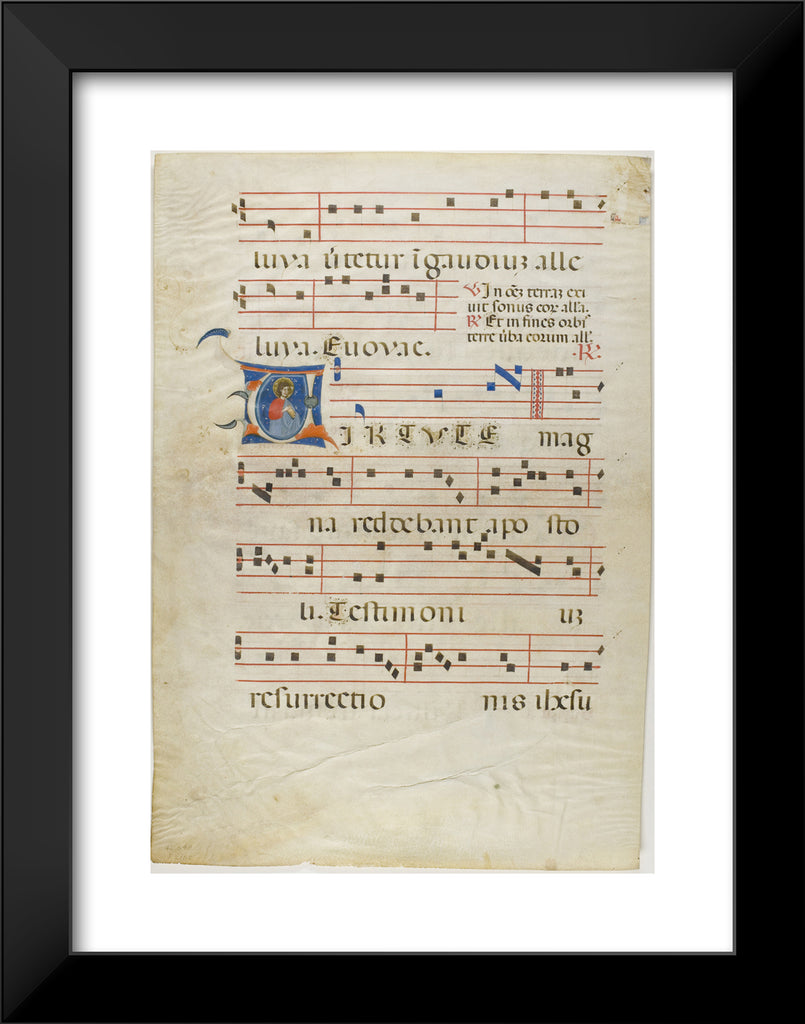 luya ūtetur ī gaudiuꝫ alle
luya. Euovae.
℣ In oēꝫ terraꝫ exi
uit sonus eoꝝ all'a.
℟ Et in fines orbis
terre ūba eorum all'.
℟.
VIRTUTE mag
na reddebant apo sto
li. Testimoni uꝫ
resurrectio nis ihesu